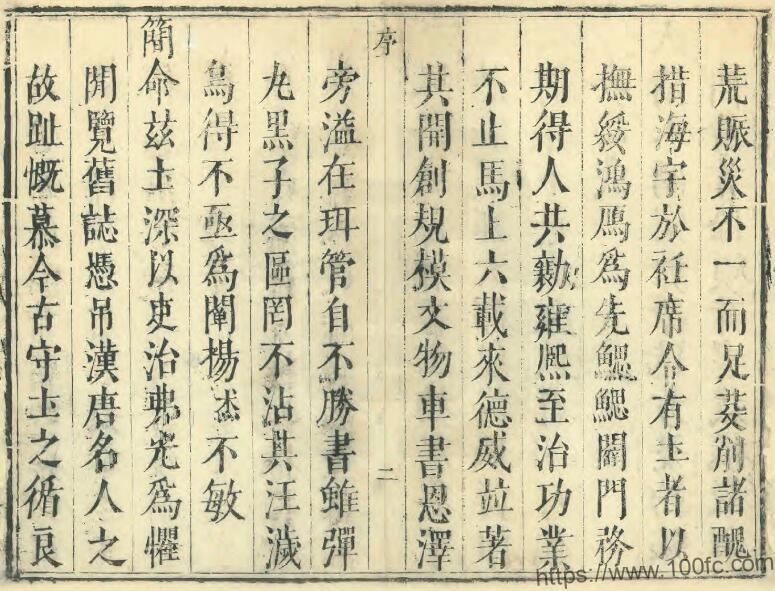 荒賑災不一而足芟削諸醜
措海宇於衽席令有土者以
撫綏鴻鴈爲先鰓鰓闢門務
期得人共勷雍熈至治功業
不止馬上六載來德威並著
其開創規模文物車書恩澤
序
二
旁溢在珥管自不勝書雖彈
丸黑子之區罔不沾其汪濊
烏得不亟爲闡揚不敏
簡命茲土深以吏治弗克爲懼
閒覽舊誌憑吊漢唐名人之
故趾慨慕今古守土之循良
https://www.100fc.com